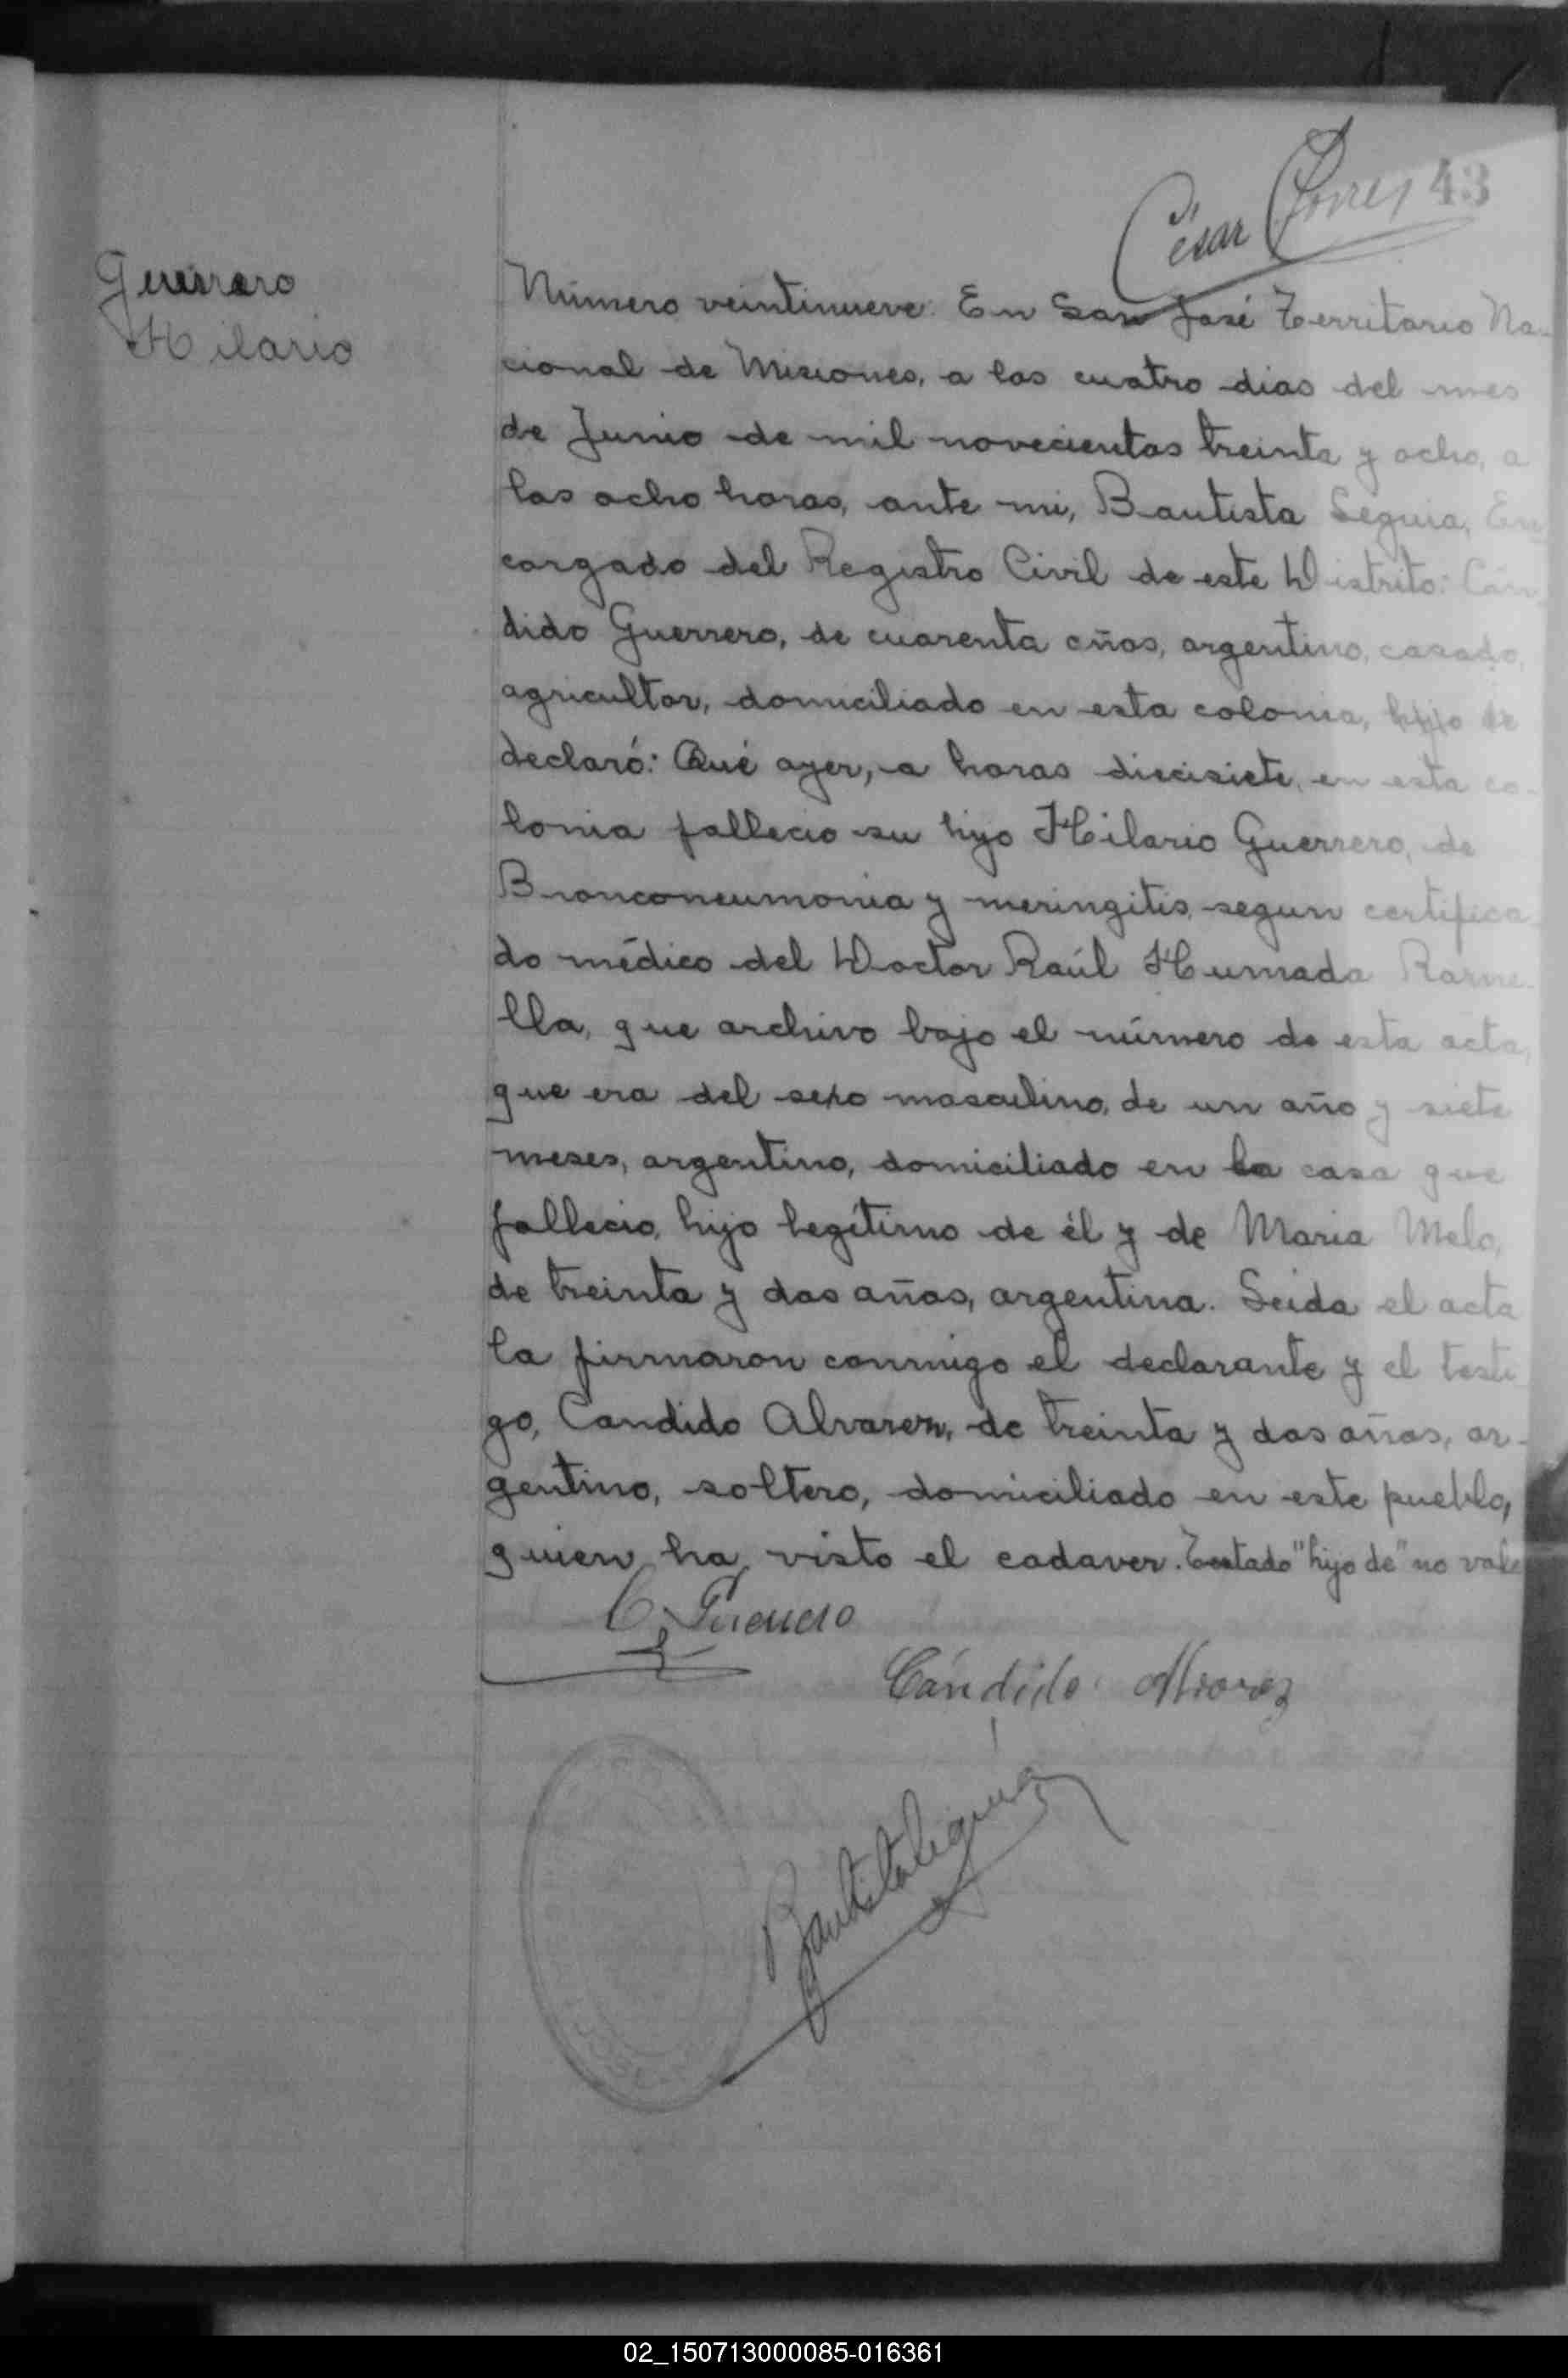 César Torres 43
Guerrero
Hilario
Número veintinueve: En San José Territorio Na-
cional de Misiones, a los cuatro dias del mes
de Junio de mil novecientos treinta y ocho, a
las ocho horas, ante mi, Bautista Seguia, En
cargado del Registro Civil de este Distrito: Cán
dido Guerrero, de cuarenta años, argentino, casado,
agricultor, domiciliado en esta colonia, hijo de
declaró: Qué ayer, a horas diecisiete, en esta co-
lonia fallecio su hijo Hilario Guerrero, de
Bronconeumonia y meringitis, segun certifica
do médico del Doctor Raúl Humada
lla, que archivo bajo el número de esta acta,
que era del sexo masculino, de un año y siete
meses, argentino, domiciliado en la casa que
fallecio, hijo legítimo de él y de Maria Melo,
de treinta y dos años, argentina. Leida el acta
la firmaron conmigo el declarante y el testi
go, Candido Alvarez, de treinta y dos años, ar-
gentino, soltero, domiciliado en este pueblo,
quien ha visto el cadaver. Testado "hijo de" no vale
C. Guerrero
Cándido Alvarez
Bautista Seguia
02_150713000085-016361